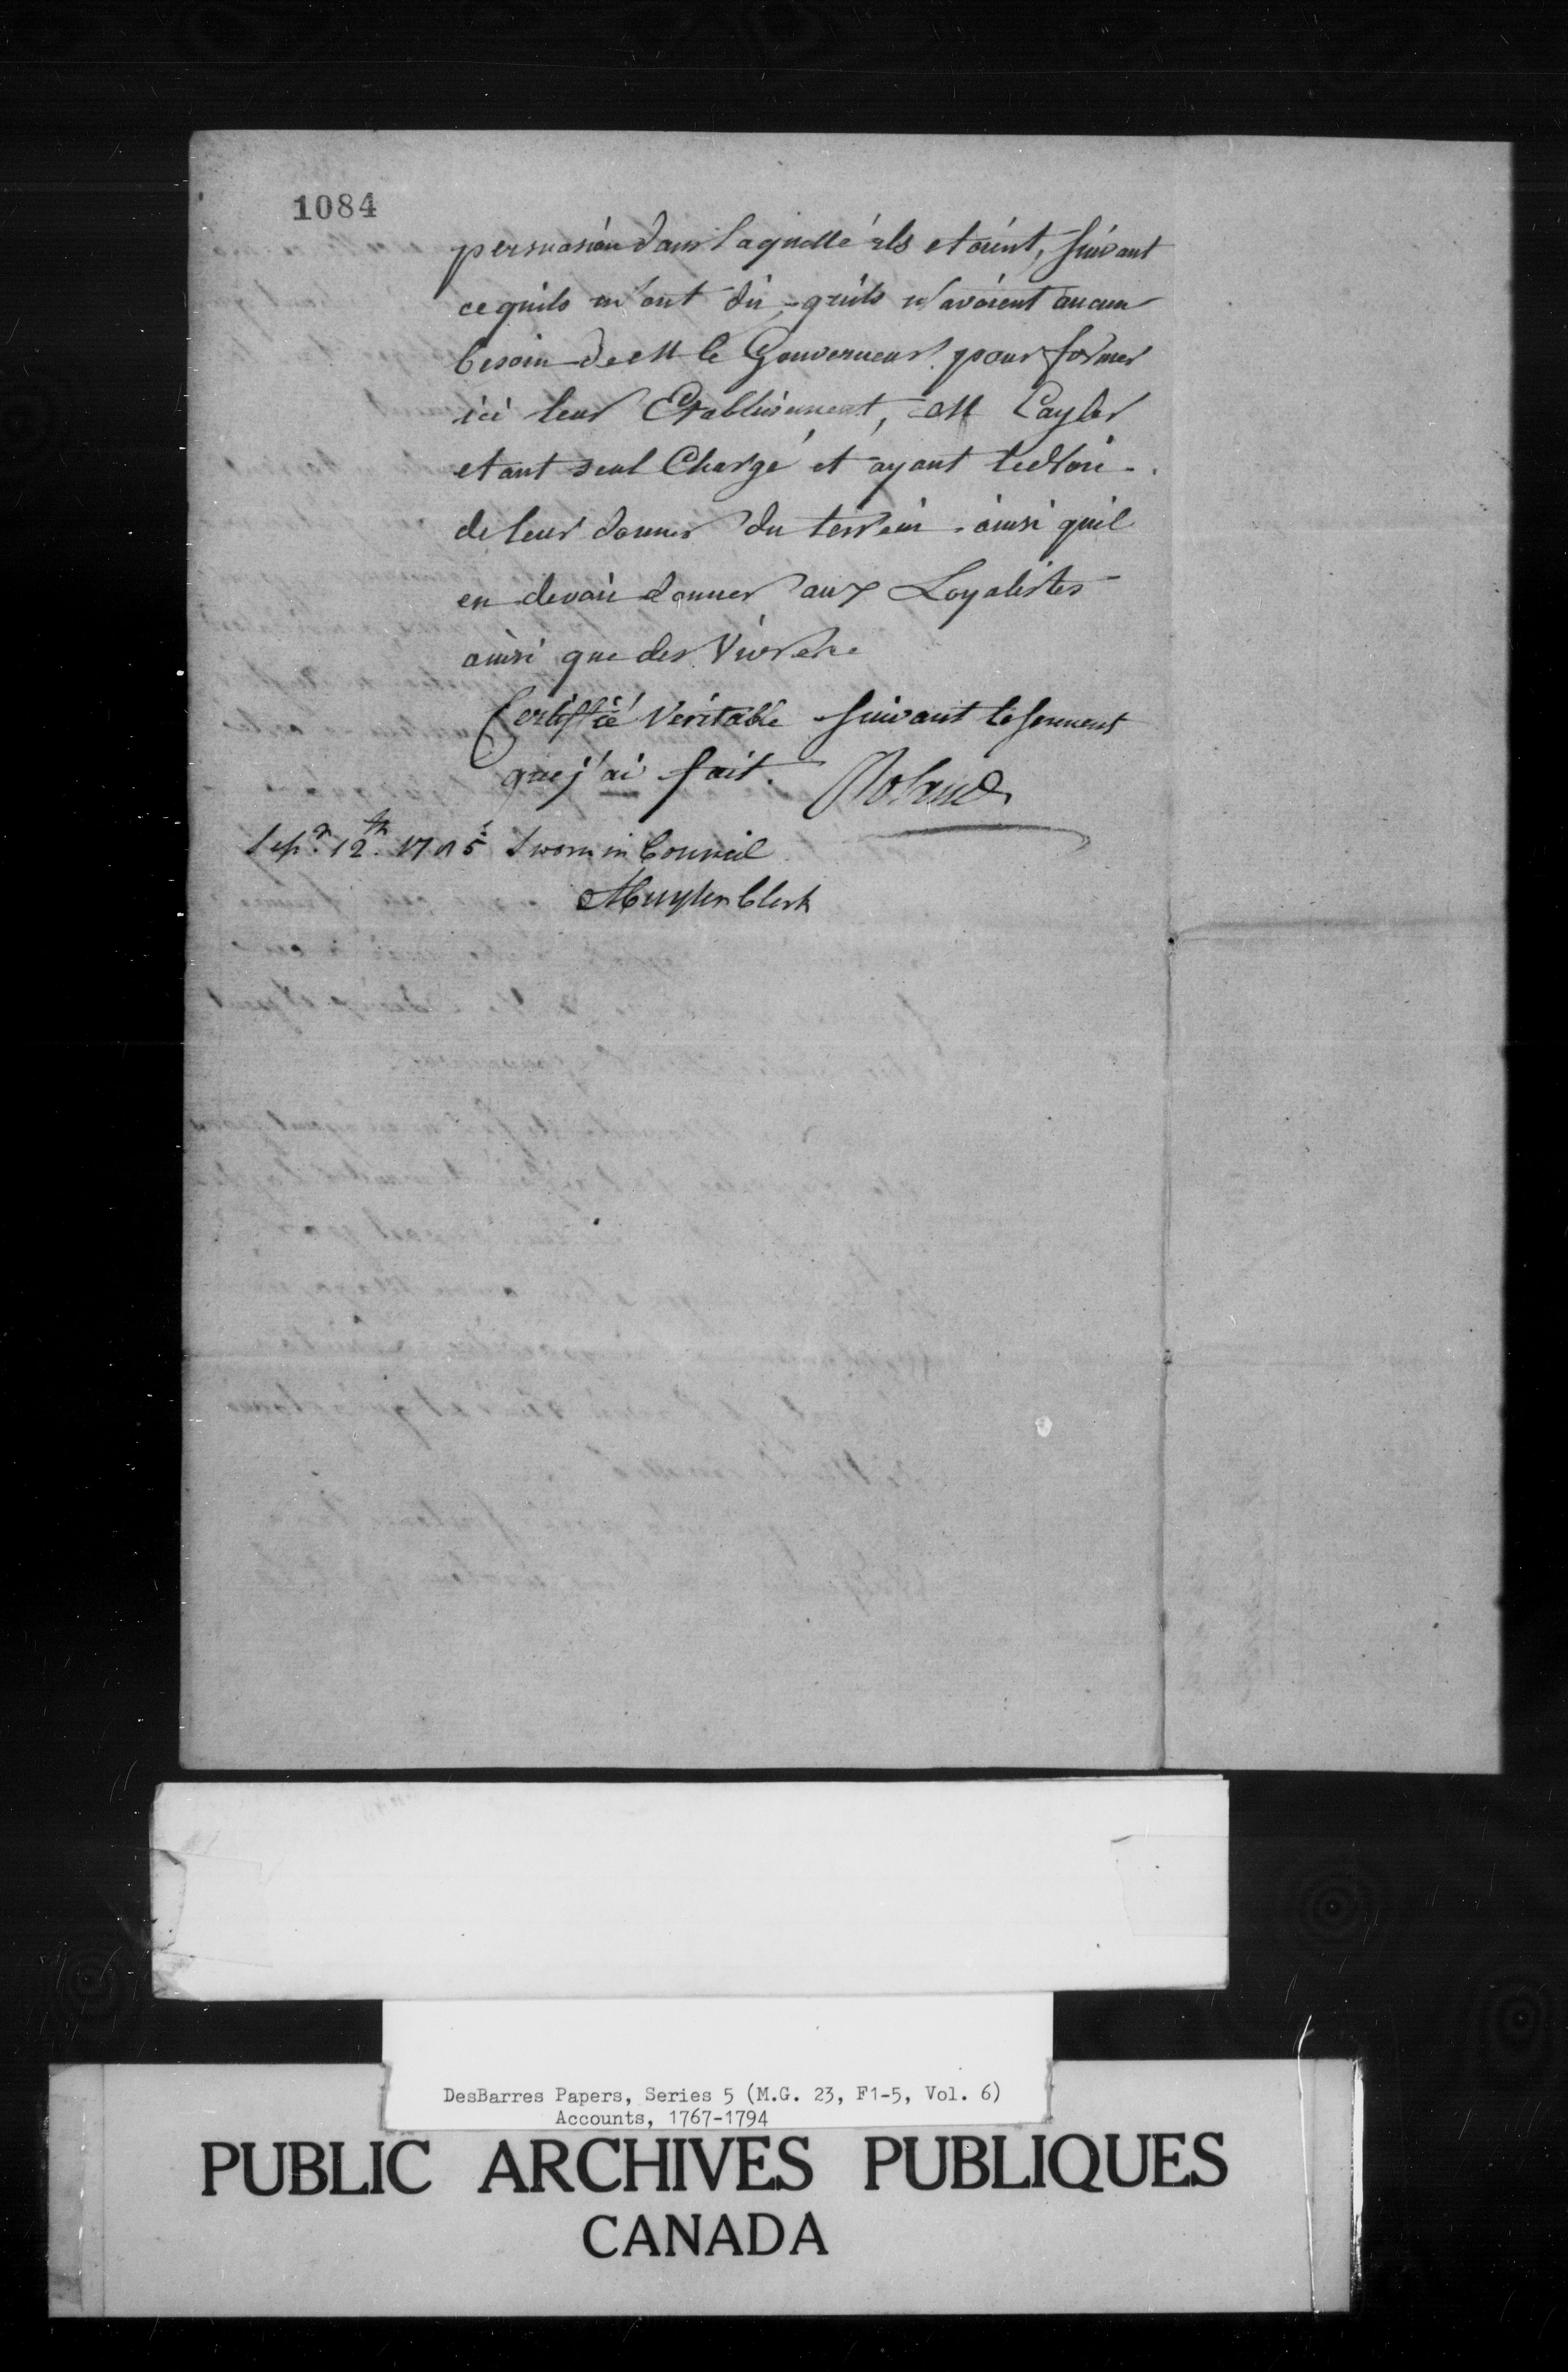 1084
persuasion dans laquelle ils etoient, suivant
ce quils m'ont dit, quils n'avoient aucun
besoin de M le Gouverneur pour former
ici leur Etablissement, M Cuyler
etant seul Chargé et ayant le droi
de leur donner du terrein ainsi quil
en devoit donner aux Loyalistes
ainsi que des Vivres &c
Certiffié Veritable suivant le serment
que j'ai fait.
Sepr. 12th. 1785 Sworn in Council
ACuyler Clerk
DesBarres Papers, Series 5 (M.G. 23, F1-5, Vol. 6)
Accounts, 1767-1794
PUBLIC ARCHIVES PUBLIQUES
CANADA